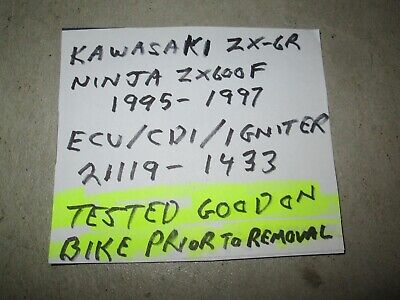 KAWASAKI ZX-6R
NINJA ZX600F
1995-1997
ECU/CDI/IGNITER
21119-1433
TESTED GOOD ON
BIKE PRIOR TO REMOVAL